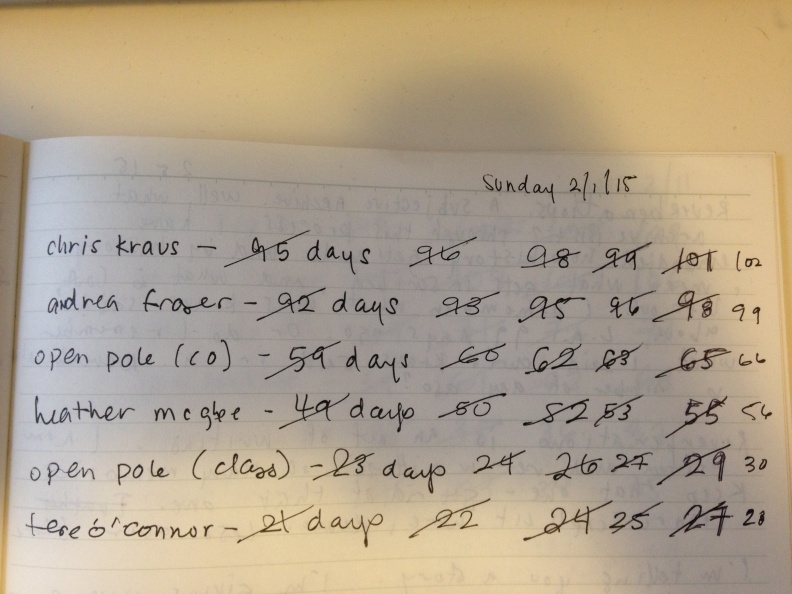 Sunday 2/1/15
chris kraus – 95 days 96 98 99 101 102
andrea fraser – 92 days 93 95 96 98 99
open pole (co) – 59 days 60 62 63 65 66
heather mcgbe - 49 days 50 52 53 55 56
open pole (class) – 23 days 24 26 27 29 30
tere o'connor – 21 days 22 24 25 27 28